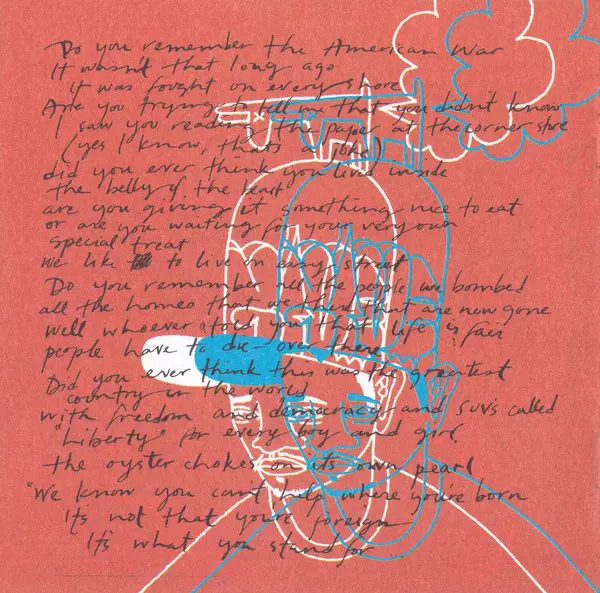 Do you remember the American War
It wasn't that long ago
It was fought on every shore
Are you trying to tell me that you didn't know
I saw you reading the paper at the corner store
(yes I know, that's a joke)
did you ever think you lived inside
the belly of the beast
are you giving it something nice to eat
or are you waiting for your very own
special treat
we like to live on easy street
Do you remember all the people we bombed
all the homes that we there that are now gone
well whoever told you that life is fair
people have to die - over there
Did you ever think this was the greatest
country in the world
with freedom and democracy and SUV's called
"Liberty" for every boy and girl.
the oyster chokes on its own pearl
"We know you can't help where you're born
It's not that you're foreign
It's what you stand for